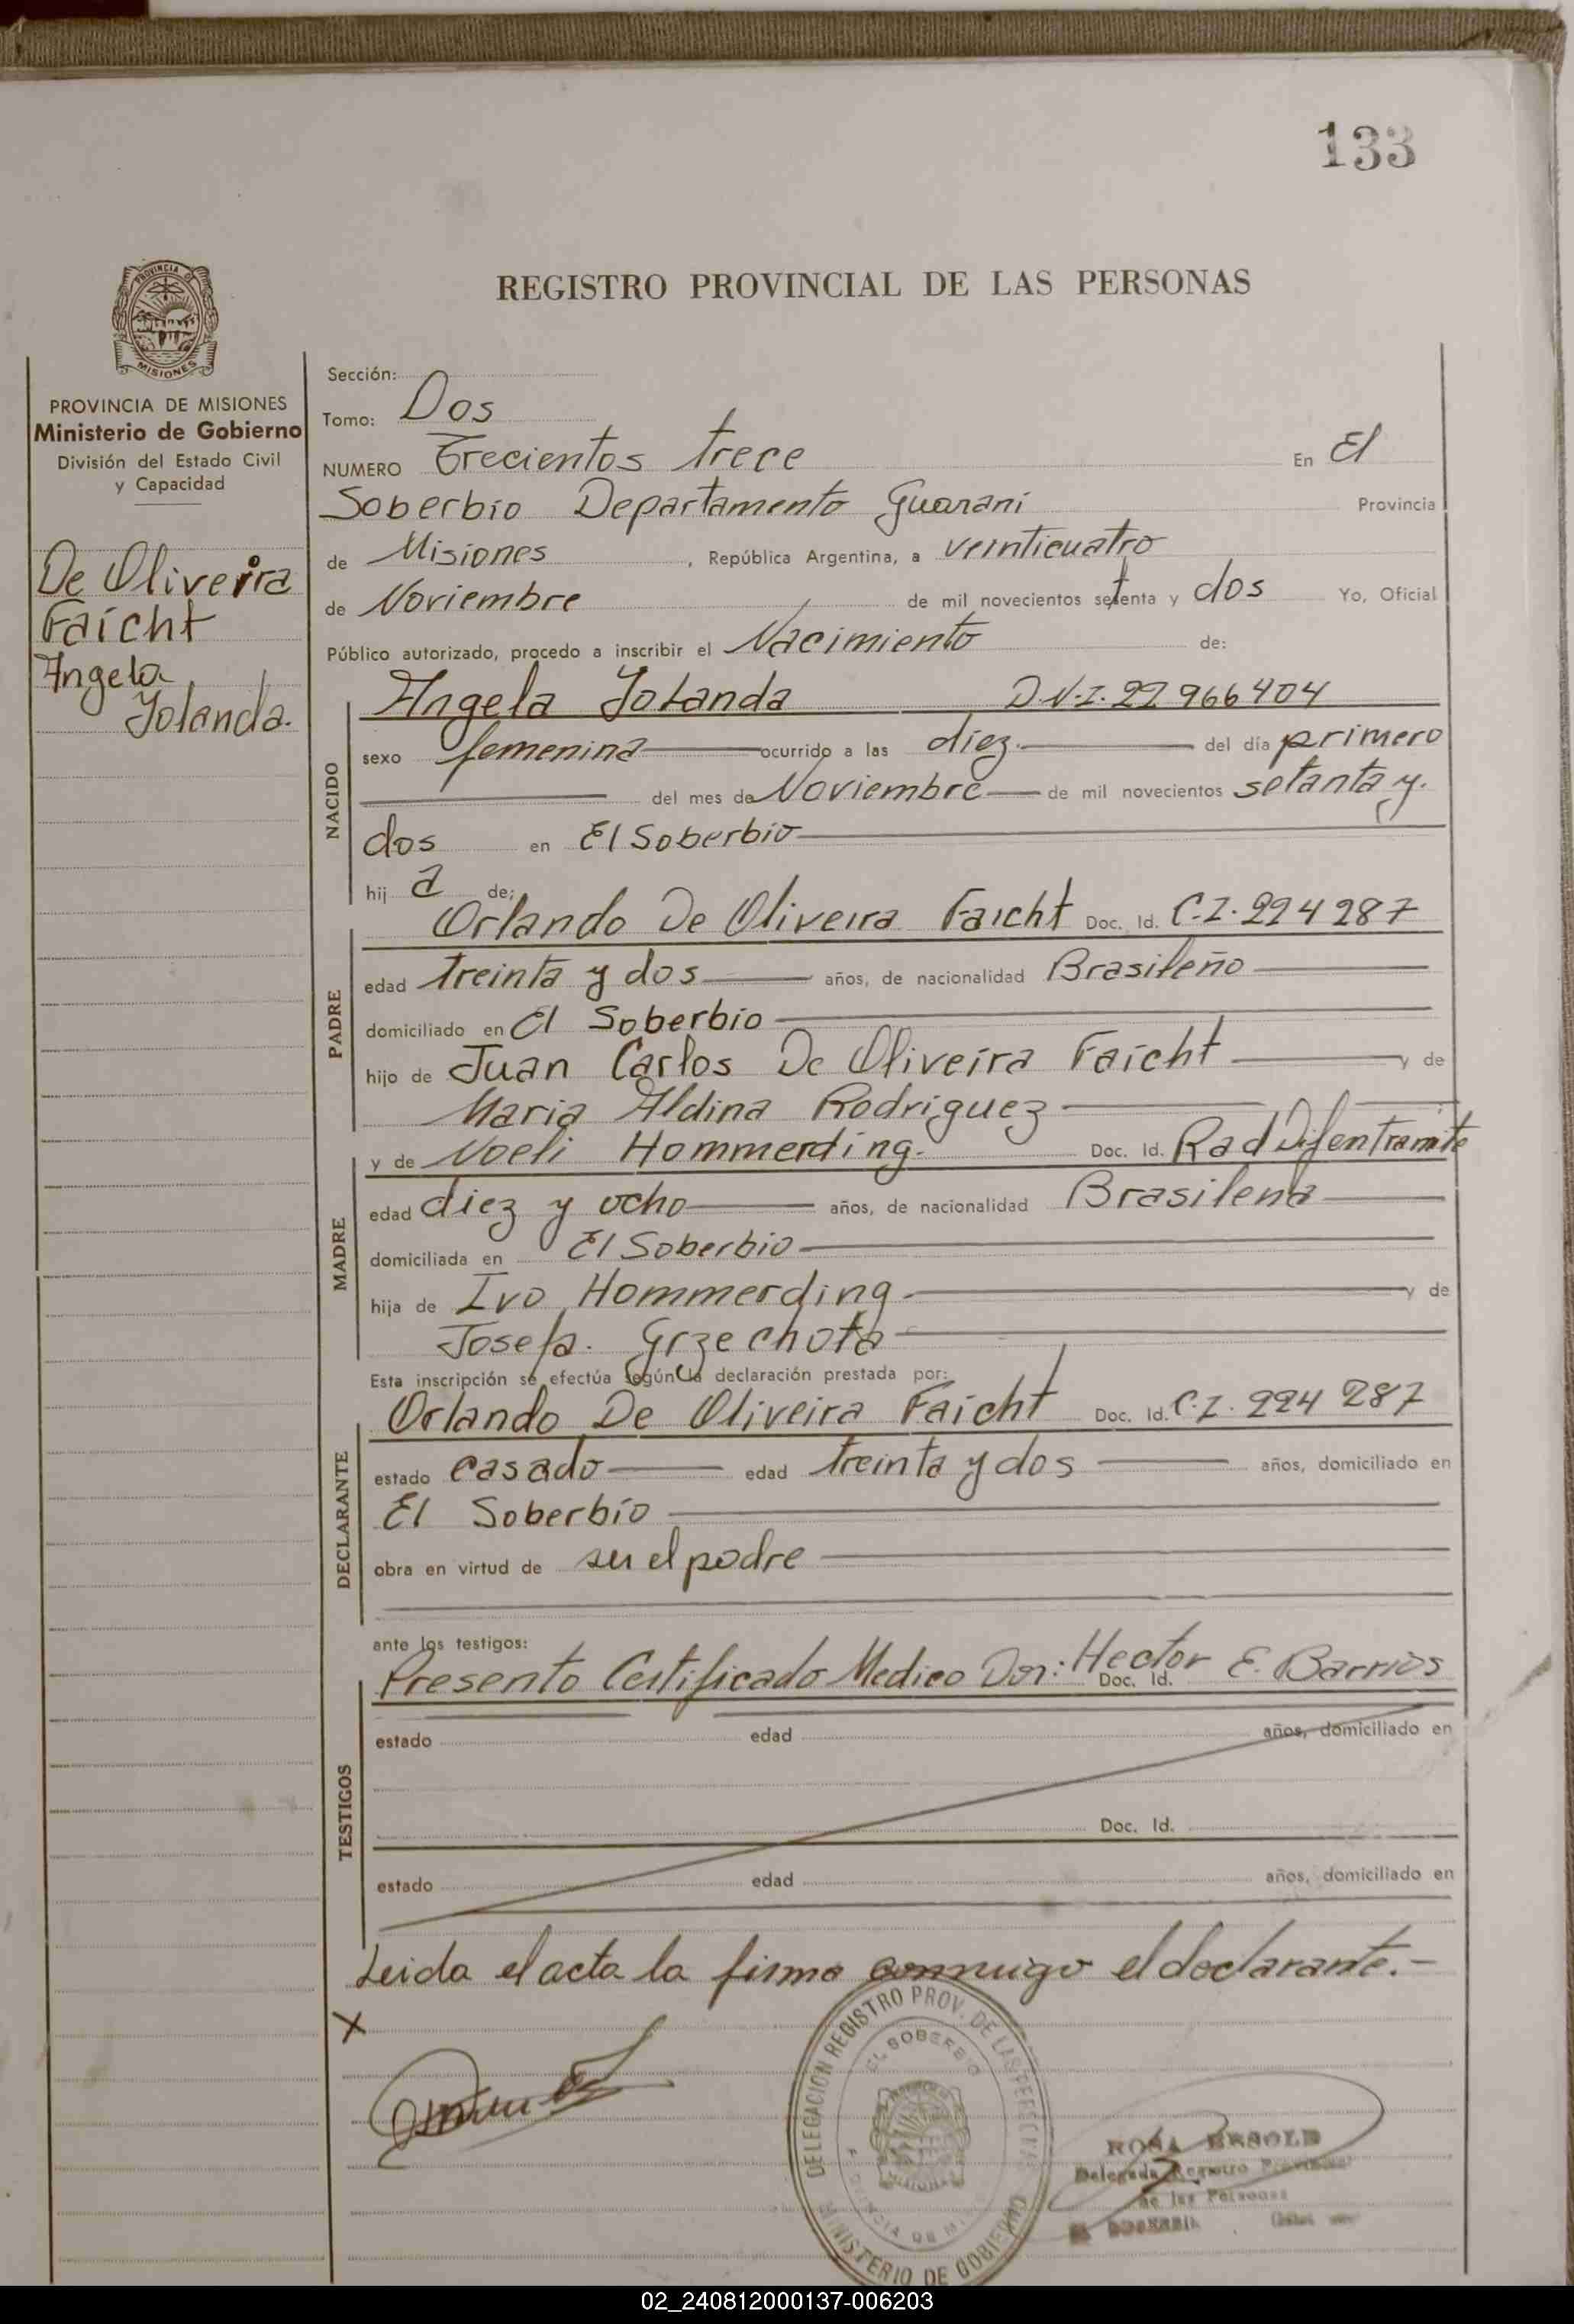 133
REGISTRO PROVINCIAL DE LAS PERSONAS
PROVINCIA DE MISIONES
Ministerio de Gobierno
División del Estado Civil
y Capacidad
De Oliveira
Faicht
Angela
Yolanda.
Sección:
Tomo: Dos
NUMERO Trecientos trece En El
Soberbio Departamento Guarani Provincia
de Misiones, República Argentina, a veinticuatro
de Noviembre de mil novecientos setenta y dos Yo, Oficial
Público autorizado, procedo a inscribir el Nacimiento de:
NACIDO
Angela Yolanda D.N.I. 22 966 404
sexo femenina ocurrido a las diez. del día primero
del mes de Noviembre de mil novecientos setanta y.
dos en El Soberbio
hij a de:
PADRE
Orlando De Oliveira Faicht Doc. Id. C.I. 224 287
edad treinta y dos años, de nacionalidad Brasileño
domiciliado en El Soberbio
hijo de Juan Carlos De Oliveira Faicht y de
Maria Aldina Rodriguez
MADRE
y de Noeli Hommerding. Doc. Id. Rad Dif en tramite
edad diez y ocho años, de nacionalidad Brasilena
domiciliada en El Soberbio
hija de Ivo Hommerding y de
Josefa. Grzechota
Esta inscripción se efectúa según la declaración prestada por:
DECLARANTE
Orlando De Oliveira Faicht Doc. Id. C.I. 224 287
estado casado edad treinta y dos años, domiciliado en
El Soberbio
obra en virtud de ser el padre
ante los testigos:
TESTIGOS
Presento Certificado Medico Dor: Hector E. Barrios
Doc. Id.
estado edad años, domiciliado en
Doc. Id.
estado edad años, domiciliado en
Leida el acta la firma conmigo el declarante.-
X
DELEGACION REGISTRO PROV. DE LAS PERSONAS
EL SOBERBIO
PROVINCIA DE MISIONES
MINISTERIO DE GOBIERNO
ROSA
Delegada Registro Provincial
de las Personas
02_240812000137-006203